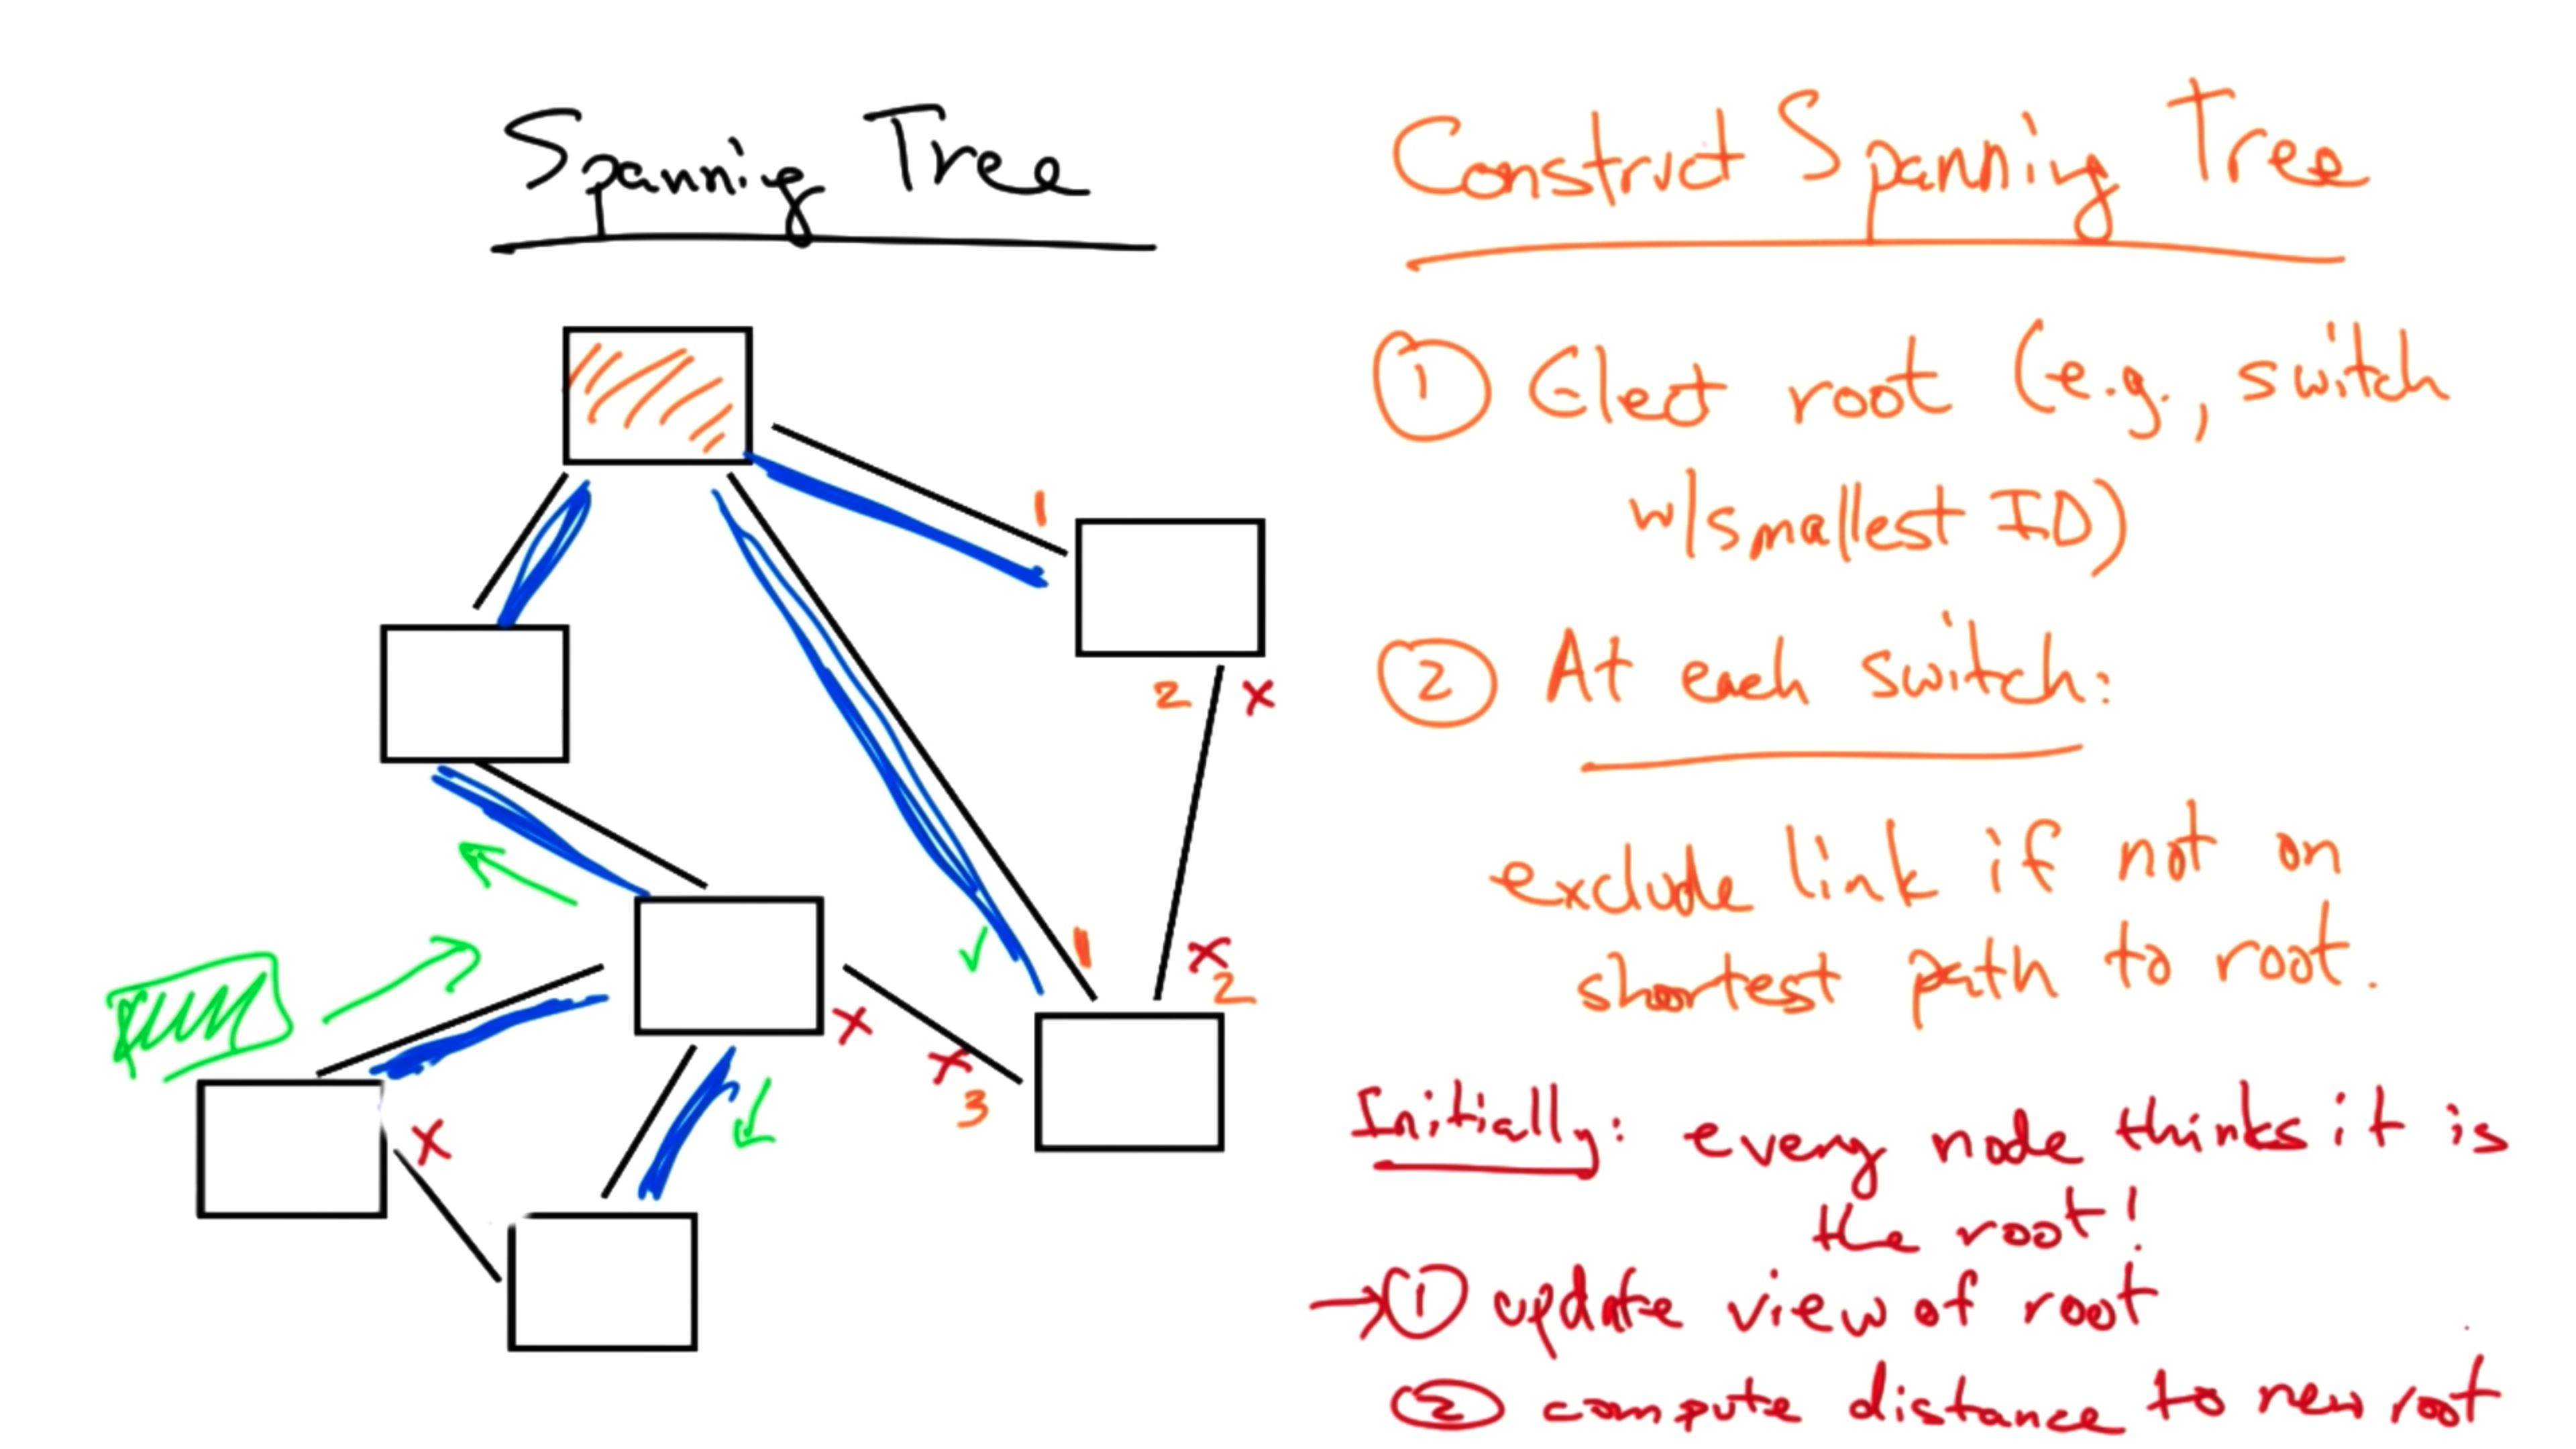 Spanning Tree
1
2 x
x
2
✓ 1
x
x
3
x
Construct Spanning Tree
① Elect root (e.g., switch
w/smallest ID)
② At each switch:
exclude link if not on
shortest path to root.
Initially: every node thinks it is
the root!
→① update view of root
② compute distance to new root